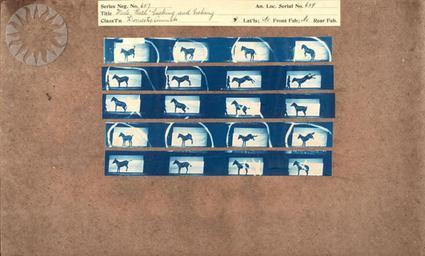 Series Neg. No. 657 An. Loc. Serial No. 659
Title Mule, "Ruth" Bucking and Kicking
Class't'n Domestic Animals Lat'ls; Front Fsh; Rear Fsh.